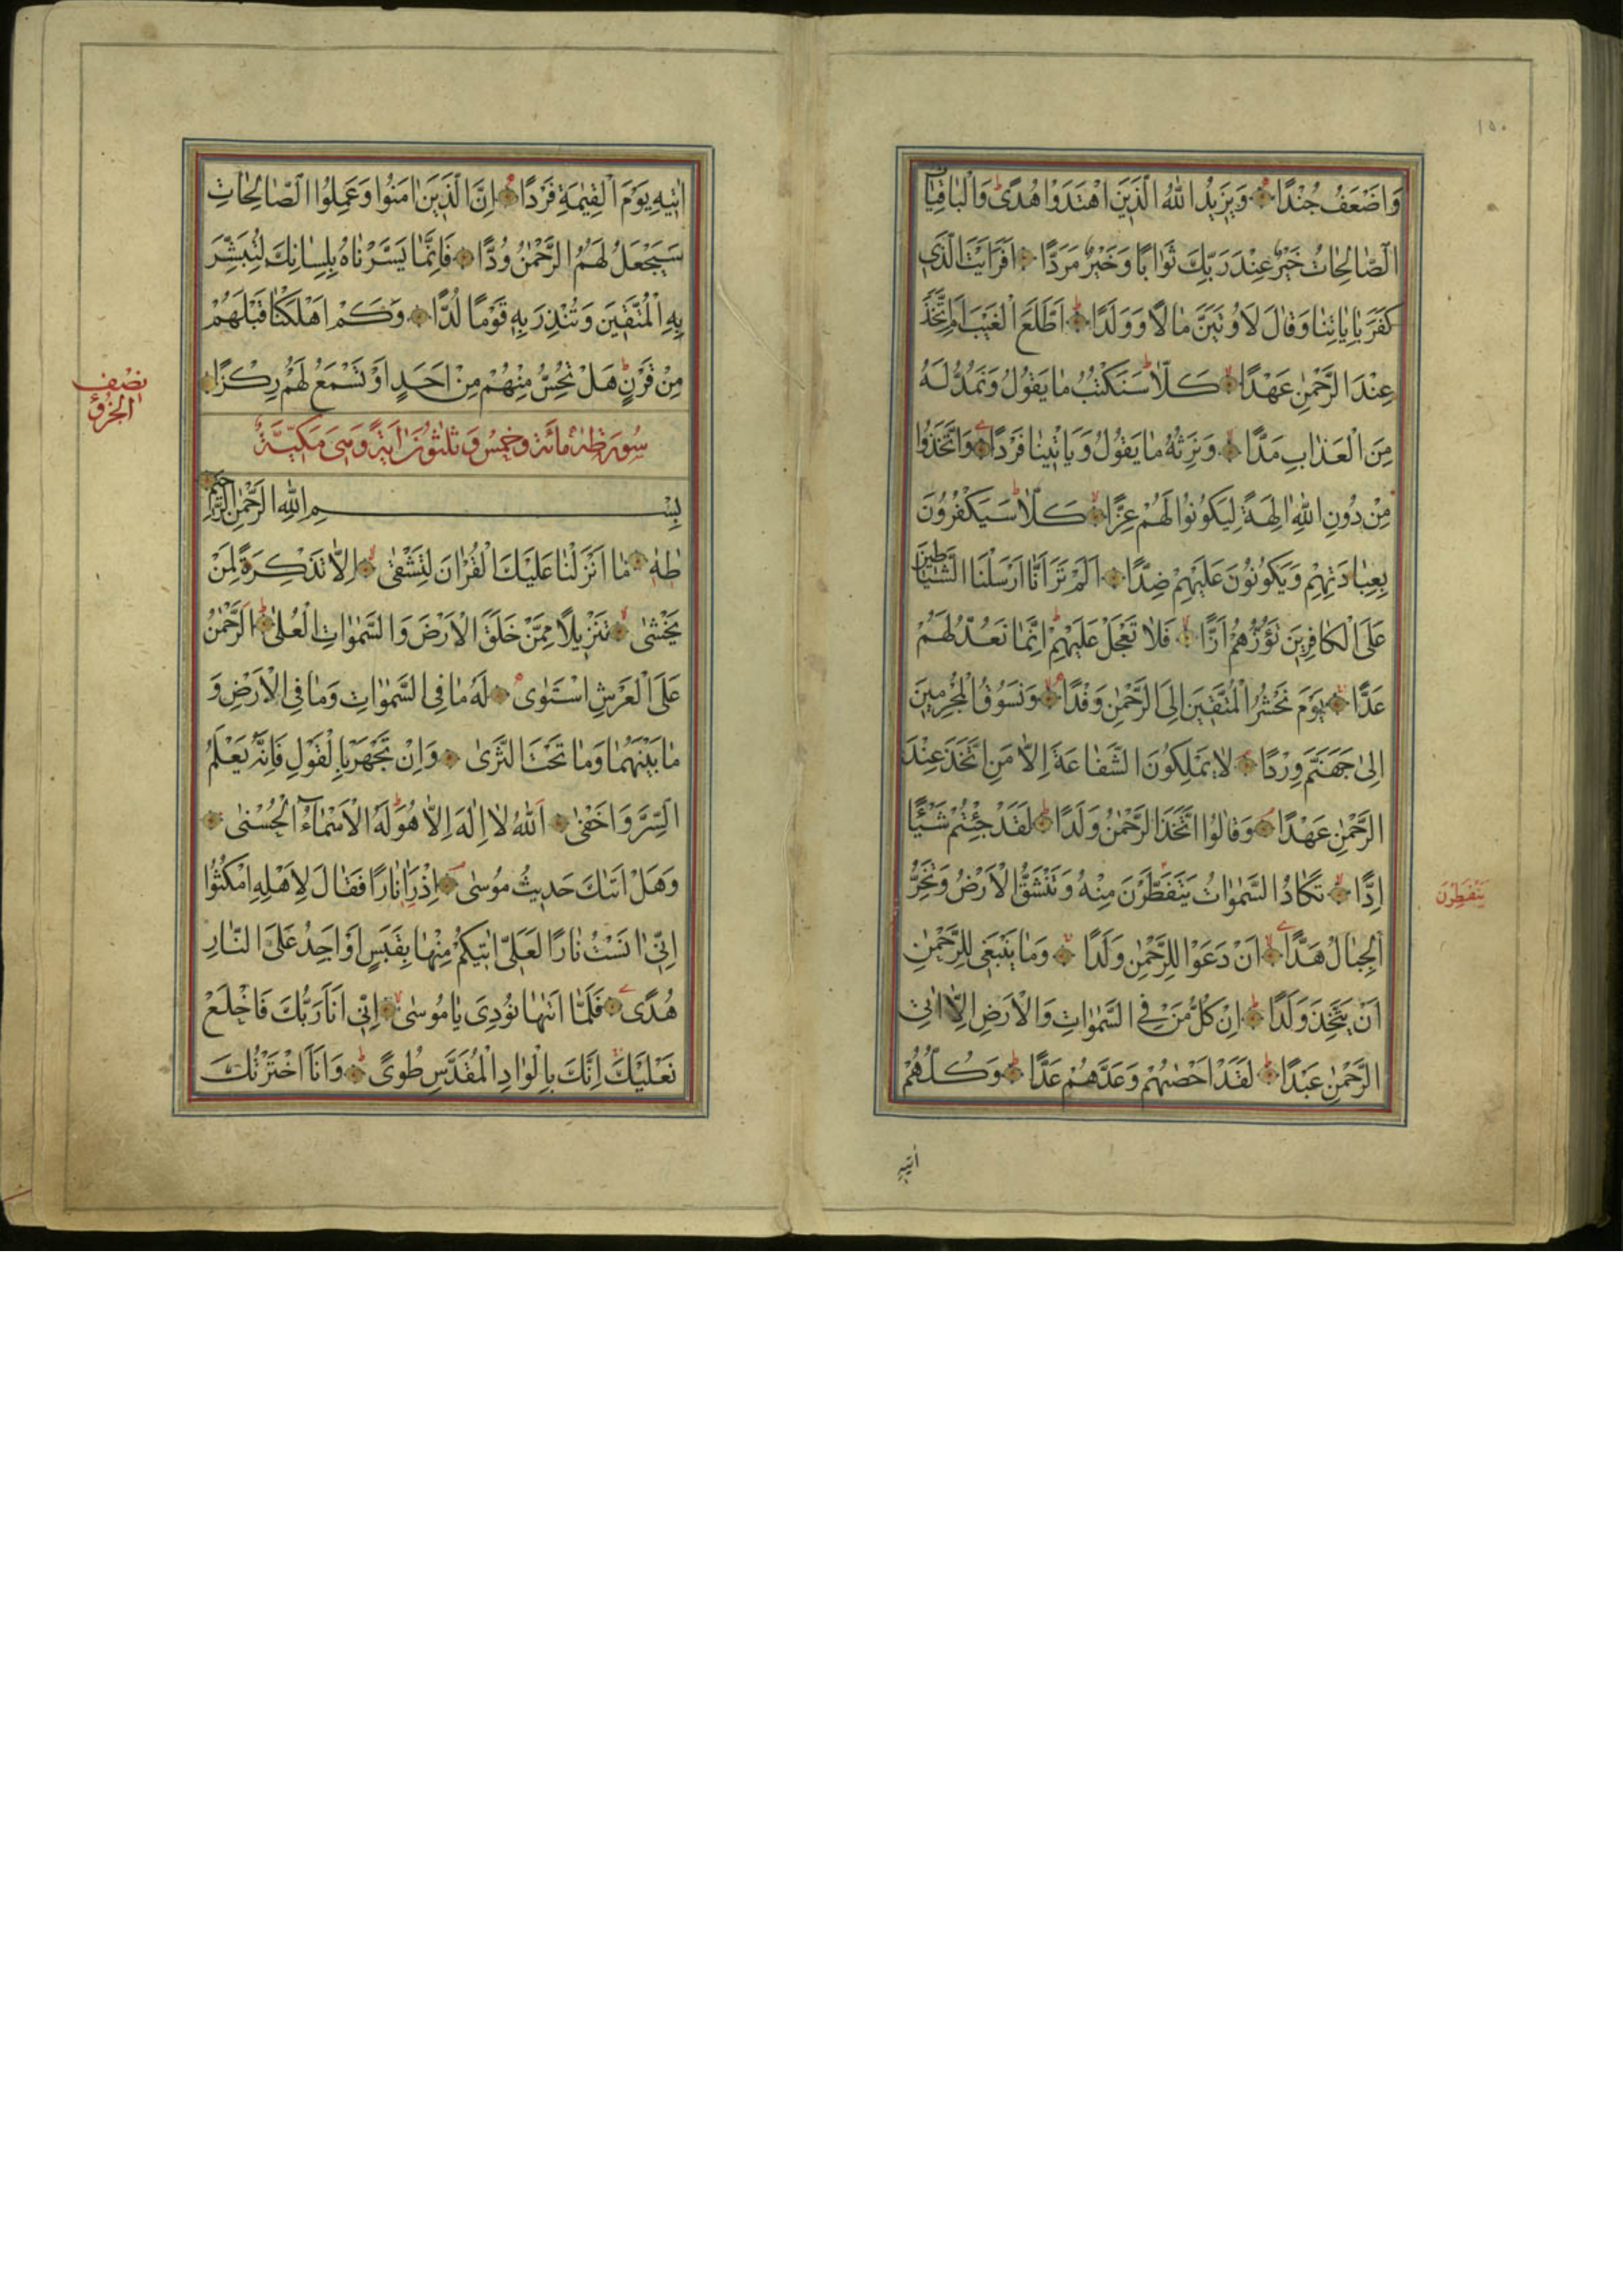 ١٥٠
وَاَضْعَفُ جُنْدًا وَيَزِيدُ اللّٰهُ الَّذِينَ اهْتَدَوْا هُدًى وَالْبَاقِيَاتُ
الصَّالِحَاتُ خَيْرٌ عِنْدَ رَبِّكَ ثَوَابًا وَخَيْرٌ مَرَدًّا اَفَرَاَيْتَ الَّذِي
كَفَرَ بِاٰيَاتِنَا وَقَالَ لَاُوتَيَنَّ مَالًا وَوَلَدًا اَطَّلَعَ الْغَيْبَ اَمِ اتَّخَذَ
عِنْدَ الرَّحْمٰنِ عَهْدًا كَلَّا سَنَكْتُبُ مَا يَقُولُ وَنَمُدُّ لَهُ
مِنَ الْعَذَابِ مَدًّا وَنَرِثُهُ مَا يَقُولُ وَيَاْتِينَا فَرْدًا وَاتَّخَذُوا
مِنْ دُونِ اللّٰهِ اٰلِهَةً لِيَكُونُوا لَهُمْ عِزًّا كَلَّا سَيَكْفُرُونَ
بِعِبَادَتِهِمْ وَيَكُونُونَ عَلَيْهِمْ ضِدًّا اَلَمْ تَرَ اَنَّا اَرْسَلْنَا الشَّيَاطِينَ
عَلَى الْكَافِرِينَ تَؤُزُّهُمْ اَزًّا فَلَا تَعْجَلْ عَلَيْهِمْ اِنَّمَا نَعُدُّ لَهُمْ
عَدًّا يَوْمَ نَحْشُرُ الْمُتَّقِينَ اِلَى الرَّحْمٰنِ وَفْدًا وَنَسُوقُ الْمُجْرِمِينَ
اِلٰى جَهَنَّمَ وِرْدًا لَا يَمْلِكُونَ الشَّفَاعَةَ اِلَّا مَنِ اتَّخَذَ عِنْدَ
الرَّحْمٰنِ عَهْدًا وَقَالُوا اتَّخَذَ الرَّحْمٰنُ وَلَدًا لَقَدْ جِئْتُمْ شَيْئًا
اِدًّا تَكَادُ السَّمٰوَاتُ يَتَفَطَّرْنَ مِنْهُ وَتَنْشَقُّ الْاَرْضُ وَتَخِرُّ
يَنْفَطِرْنَ
الْجِبَالُ هَدًّا اَنْ دَعَوْا لِلرَّحْمٰنِ وَلَدًا وَمَا يَنْبَغِي لِلرَّحْمٰنِ
اَنْ يَتَّخِذَ وَلَدًا اِنْ كُلُّ مَنْ فِي السَّمٰوَاتِ وَالْاَرْضِ اِلَّا اٰتِي
الرَّحْمٰنِ عَبْدًا لَقَدْ اَحْصٰيهُمْ وَعَدَّهُمْ عَدًّا وَكُلُّهُمْ
اٰتِيهِ
اٰتِيهِ يَوْمَ الْقِيٰمَةِ فَرْدًا اِنَّ الَّذِينَ اٰمَنُوا وَعَمِلُوا الصَّالِحَاتِ
سَيَجْعَلُ لَهُمُ الرَّحْمٰنُ وُدًّا فَاِنَّمَا يَسَّرْنَاهُ بِلِسَانِكَ لِتُبَشِّرَ
بِهِ الْمُتَّقِينَ وَتُنْذِرَ بِهِ قَوْمًا لُدًّا وَكَمْ اَهْلَكْنَا قَبْلَهُمْ
مِنْ قَرْنٍ هَلْ تُحِسُّ مِنْهُمْ مِنْ اَحَدٍ اَوْ تَسْمَعُ لَهُمْ رِكْزًا
نِصْف
الجزؤ
سُورَةُ طٰهٰ مائة وخمس وثلثون اٰية وهى مكّيّة
بِسْمِ اللّٰهِ الرَّحْمٰنِ الرَّحِيمِ
طٰهٰ مَا اَنْزَلْنَا عَلَيْكَ الْقُرْاٰنَ لِتَشْقٰى اِلَّا تَذْكِرَةً لِمَنْ
يَخْشٰى تَنْزِيلًا مِمَّنْ خَلَقَ الْاَرْضَ وَالسَّمٰوَاتِ الْعُلٰى اَلرَّحْمٰنُ
عَلَى الْعَرْشِ اسْتَوٰى لَهُ مَا فِي السَّمٰوَاتِ وَمَا فِي الْاَرْضِ وَ
مَا بَيْنَهُمَا وَمَا تَحْتَ الثَّرٰى وَاِنْ تَجْهَرْ بِالْقَوْلِ فَاِنَّهُ يَعْلَمُ
السِّرَّ وَاَخْفٰى اَللّٰهُ لَا اِلٰهَ اِلَّا هُوَ لَهُ الْاَسْمَاءُ الْحُسْنٰى
وَهَلْ اَتٰيكَ حَدِيثُ مُوسٰى اِذْ رَاٰ نَارًا فَقَالَ لِاَهْلِهِ امْكُثُوا
اِنِّي اٰنَسْتُ نَارًا لَعَلِّي اٰتِيكُمْ مِنْهَا بِقَبَسٍ اَوْ اَجِدُ عَلَى النَّارِ
هُدًى فَلَمَّا اَتٰيهَا نُودِيَ يَا مُوسٰى اِنِّي اَنَا رَبُّكَ فَاخْلَعْ
نَعْلَيْكَ اِنَّكَ بِالْوَادِ الْمُقَدَّسِ طُوًى وَاَنَا اخْتَرْتُكَ